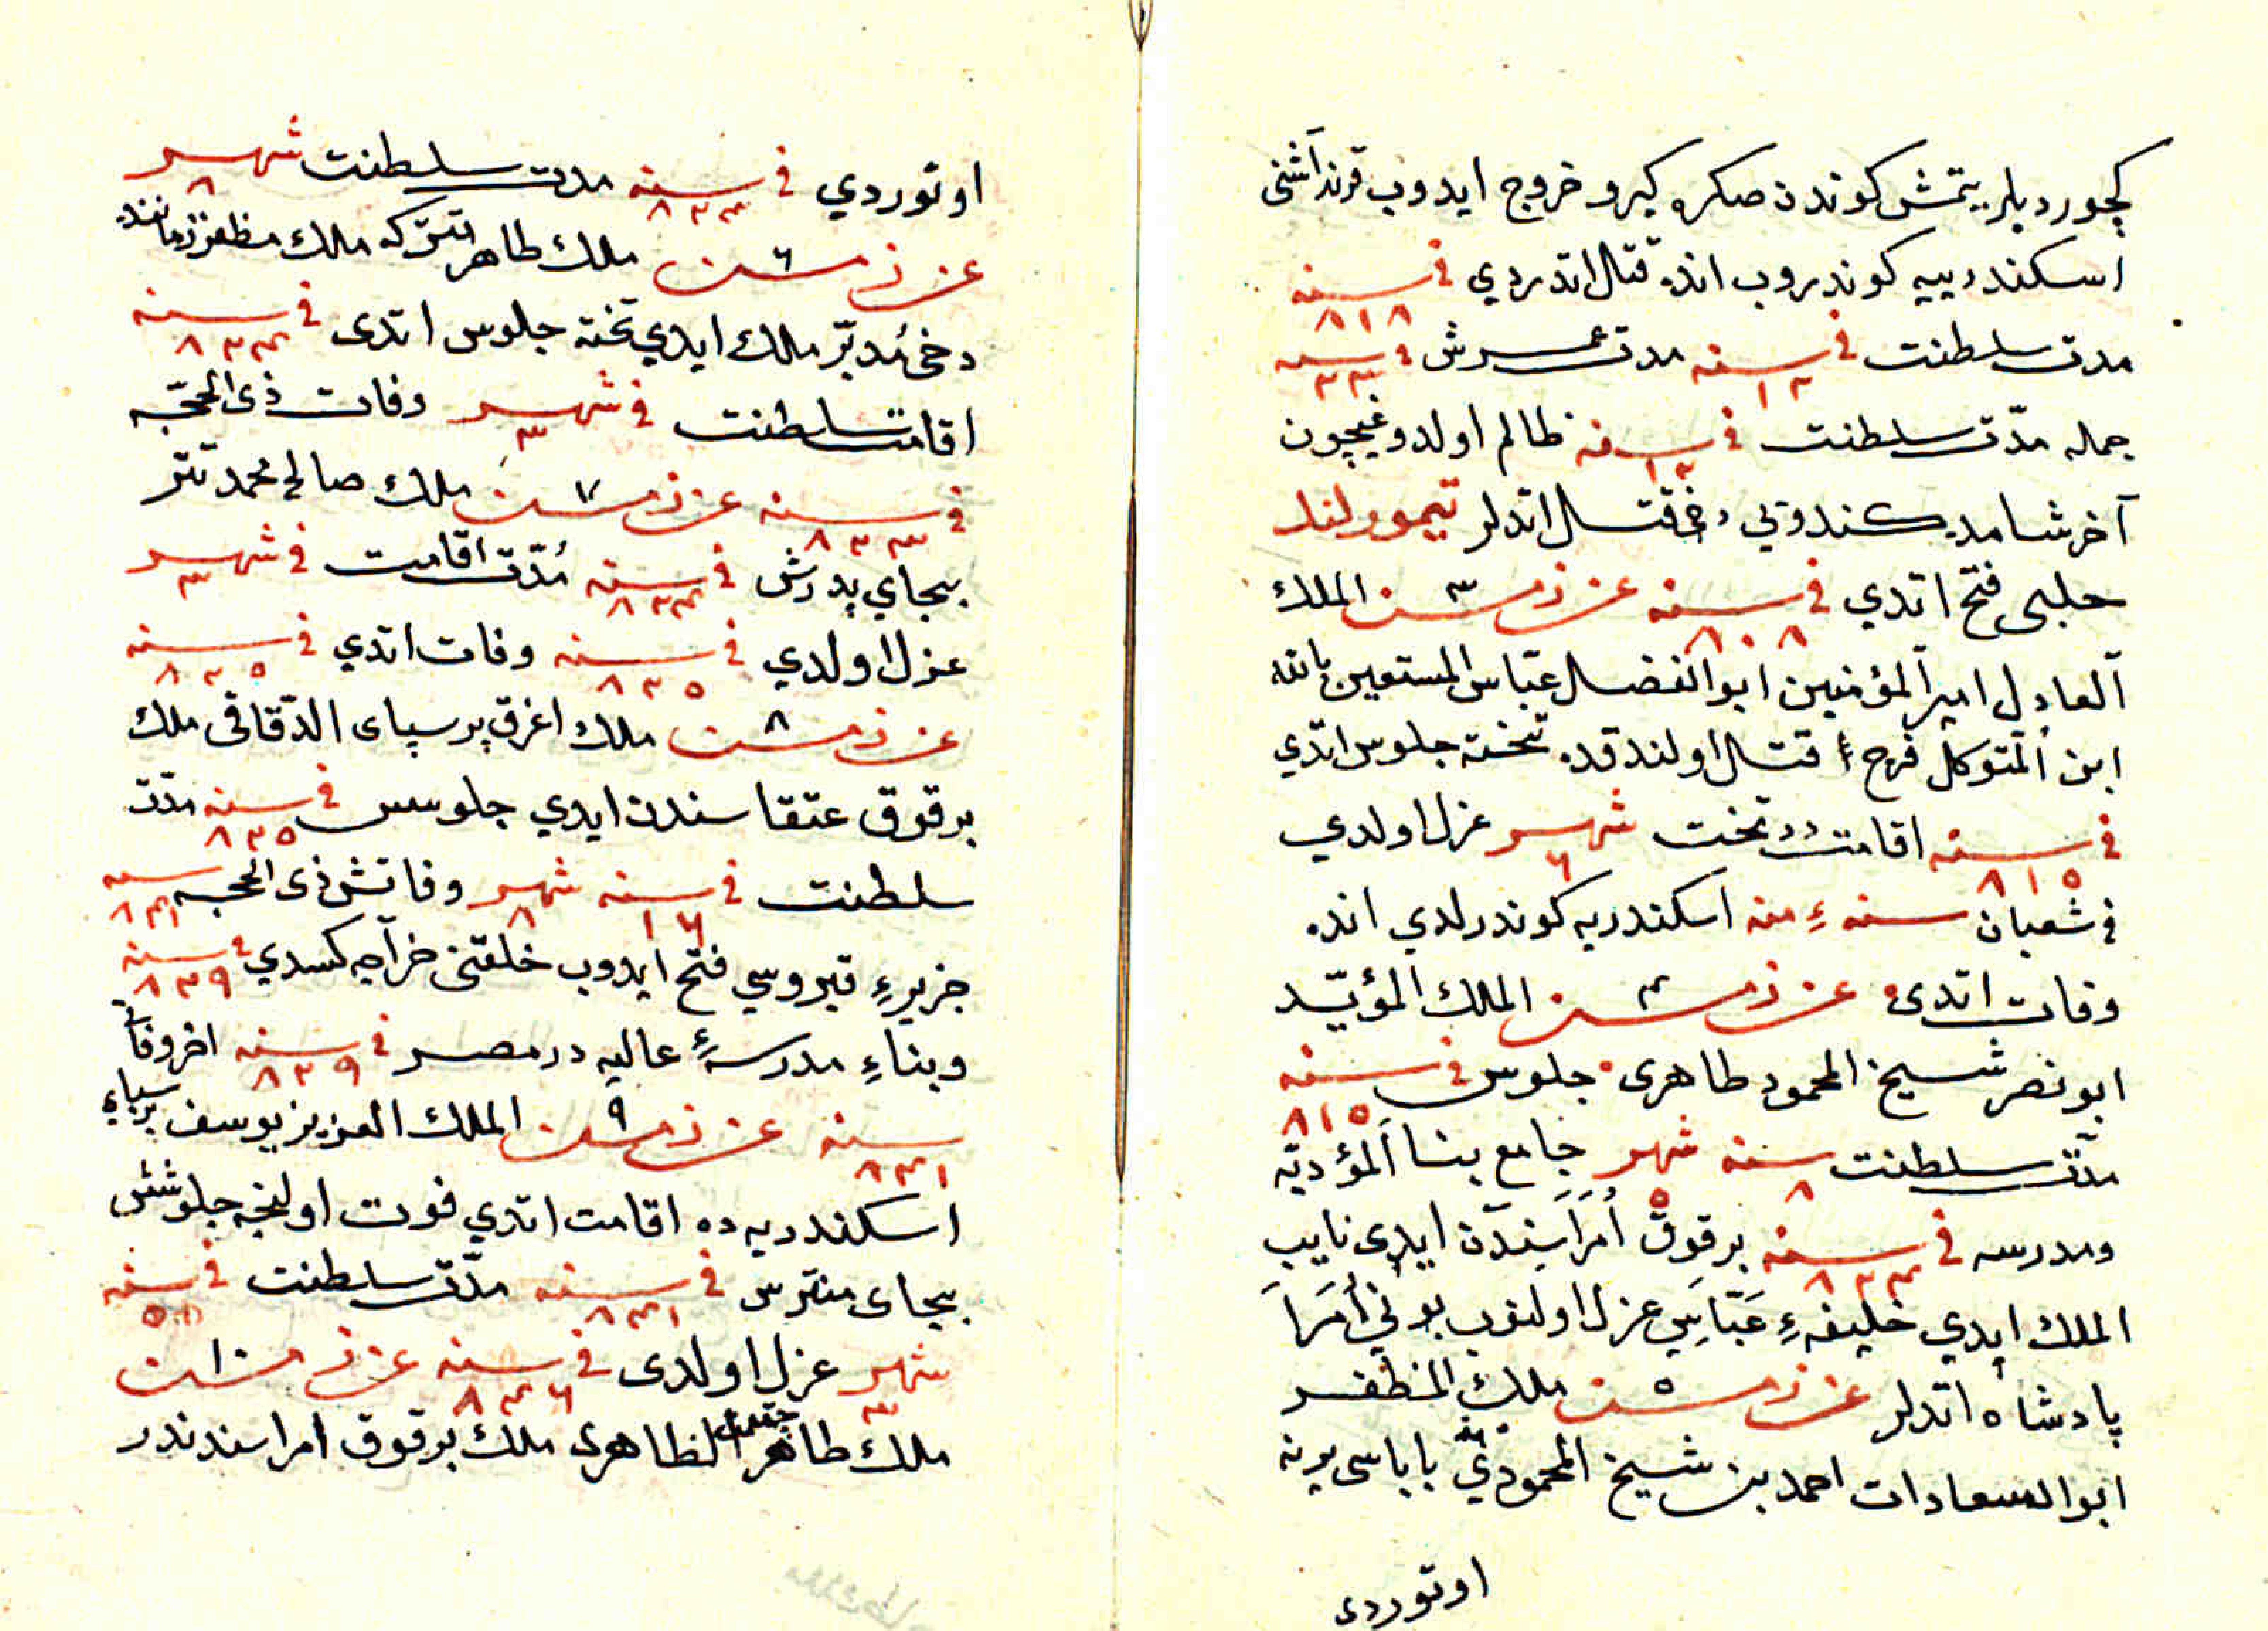 كچورديلر يتمش كوندن صكره كيرو خروج ايدوب قرنداشنی
اسكندريیه كوندروب انده قتال اتدردي فی سنه ٨١٨
مدت سلطنت فی سنه ١٣ مدت عمرش فی سنه ٣٣
جمله مدّت سلطنت فی سنه ١٣ ظالم اولدوغیچون
آخر شامده كندویی دخی قتل اتدلر تیمورلنك
حلبی فتح اتدي فی سنه ٨٠٨ ٣ الملك
العادل امير المؤمنين ابو الفضل عبّاس المستعين بالله
ابن المتوكل فرج قتل اولندقده تخته جلوس اتدي
فی سنه ٨١٥ اقامت در تخت شهر ٦ عزل اولدي
فی شعبان سنهٔ منه اسكندريه كوندرلدي انده
وفات اتدی ٤ الملك المؤيّد
ابو نصر شيخ المحمود طاهری جلوس فی سنه ٨١٥
مدّت سلطنت سنه ٨ شهر ٥ جامع بنا المؤديّه
ومدرسه فی سنه ٨٢٤ برقوق اُمَرَاسندن ايدی نايب
الملك ايدي خليفهٔ عَبّاسی عزل اولنوب بونی اُمَرَا
پادشاه اتدلر ٥ ملك المظفر
ابو السعادات احمد بن شيخ المحمودي باباسی يرنه
اوتوردی
اوتوردي فی سنه ٨٢٤ مدت سلطنت شهر ٨
٦ ملك طاهر تتركه ملك مظفر زماننده
دخی مُدبّر ملك ايدي تخته جلوس اتدی فی سنه ٨٢٤
اقامت سلطنت فی شهر ٣ وفات ذی الحجّه
فی سنه ٨٢٣ ٧ ملك صالح محمد تتر
بجاي پدرش فی سنه ٨٢٤ مُدّت اقامت فی شهر ٣
عزل اولدي فی سنه ٨٢٥ وفات اتدي فی سنه ٨٢٥
٨ ملك اغرق پرسپای الدّقاقی ملك
برقوق عتقاسندن ايدي جلوس فی سنه ٨٢٥ مدّت
سلطنت فی سنه ١٦ شهر ٨ وفاتش ذی الحجه سنه ٨٤١
جزيرهٔ قبروسي فتح ايدوب خلقنی خراجه كسدي فی سنه ٨٢٩
وبناءِ مدرسهٔ عاليه در مصر فی سنه ٨٢٩ اخر وفات
سنه ٨٤١ ٩ الملك العزيز يوسف برسبای
اسكندريه ده اقامت اتدي فوت اولنجه جلوسش
بجای منترس فی سنه ٨٤١ مدّت سلطنت فی سنه
شهر ٣ عزل اولدی فی سنه ٨٤٦ ١٠
ملك طاهر جقمق الظاهری ملك برقوق امراسندندر